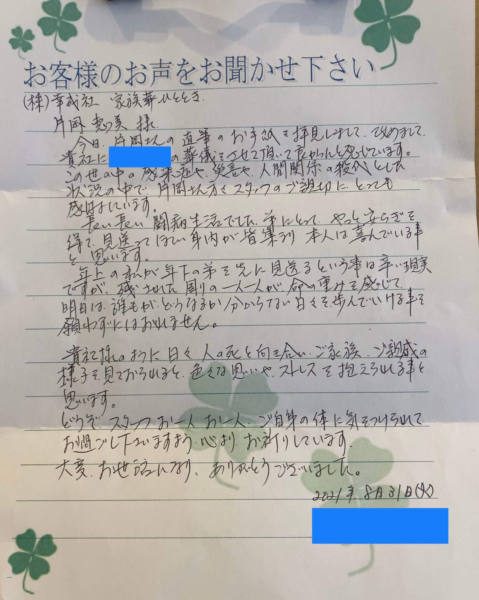 お客様のお声をお聞かせ下さい
(株)幸成社 家族葬ひととき
片岡 恵美 様
今日、片岡さんの直筆のお手紙を拝見しまして、改めまして
貴社に の葬儀をさせて頂いて良かったと感じています。
この世の中の感染症や、災害や、人間関係の殺伐とした
状況の中で、片岡さん方、スタッフのご親切に、とても
感謝しています。
長い長い闘病生活でした。弟にとって、やっと安らぎを
得て、見送ってほしい身内が皆集まり 本人は喜んでいる事
と思います。
年上の 年下の弟を先に見送るという事は辛い現実
ですが、残された周りの一人一人が、命の重さを感じて、
明日は、誰もが、どうなるか分からない日々を歩んでいける事を
願わずにはおれません。
貴社様のように日々、人の死と向き合い、ご家族、ご親戚の
様子を見ておられると、色々な思いや、ストレスを抱えられる事と
思います。
どうぞ、スタッフお一人お一人、ご自身の体に気をつけられて
お過ごし下さいますよう、心よりお祈りしています。
大変、お世話になり、ありがとうございました。
2021年 8月31日(火)